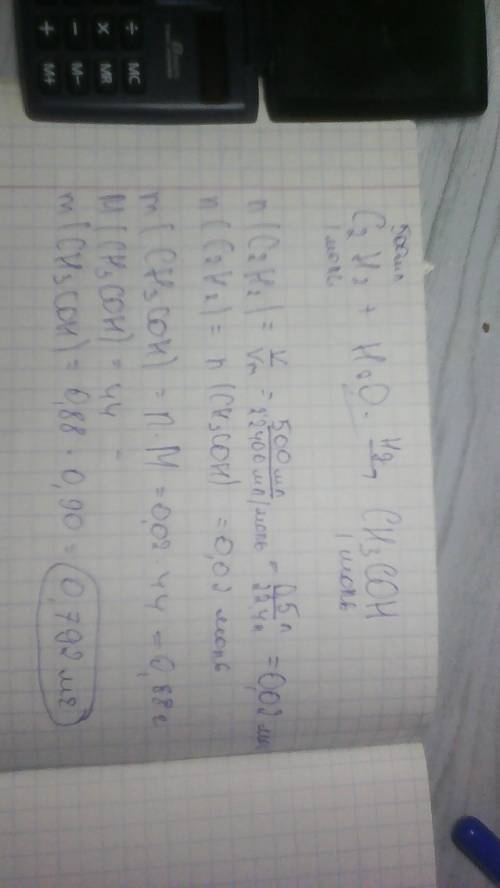 500мл
C2H2 + H2O · Hg → CH3COH
1 моль 1 моль
n(C2H2) = V/Vm = 500 мл/22400 мл/моль = 0,5л/22,4л = 0,02 м
n(C2H2) = n(CH3COH) = 0,02 моль
m(CH3COH) = n · M = 0,02 · 44 = 0,88г
M(CH3COH) = 44
m(CH3COH) = 0,88 · 0,90 = 0,792
÷ MC
× MR
− M−
+ M+